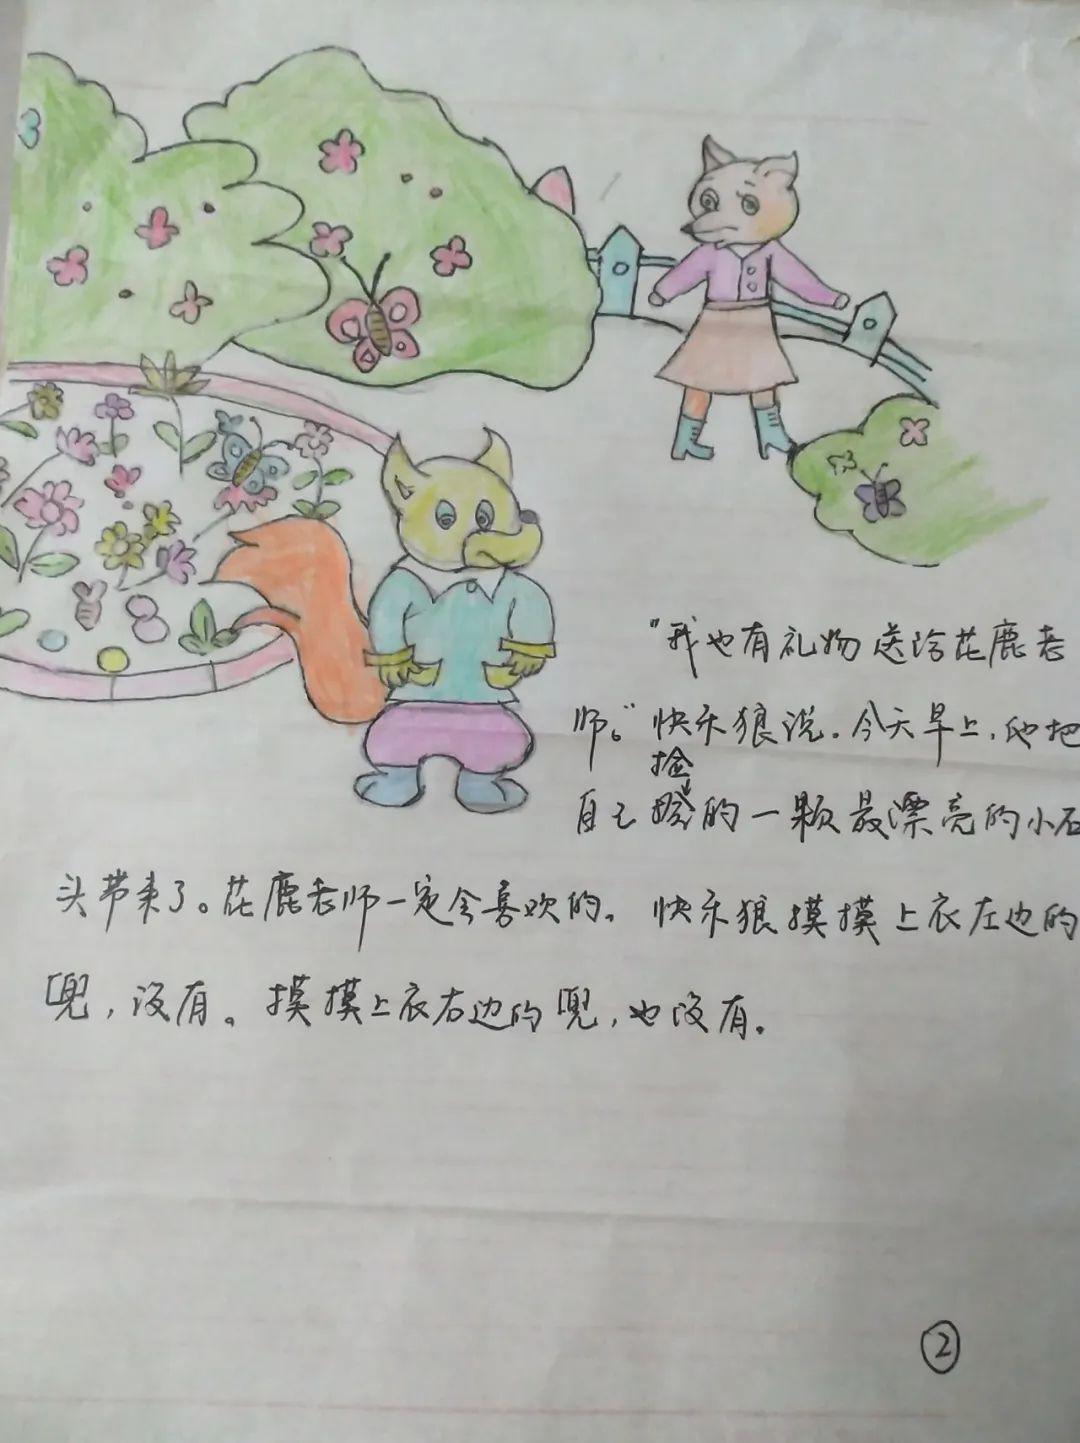 "我也有礼物送给花鹿老
师。"快乐狼说。今天早上,他把
捡
自己的一颗最漂亮的小石
头带来了。花鹿老师一定会喜欢的。快乐狼摸摸上衣左边的
兜,没有。摸摸上衣右边的兜,也没有。
2